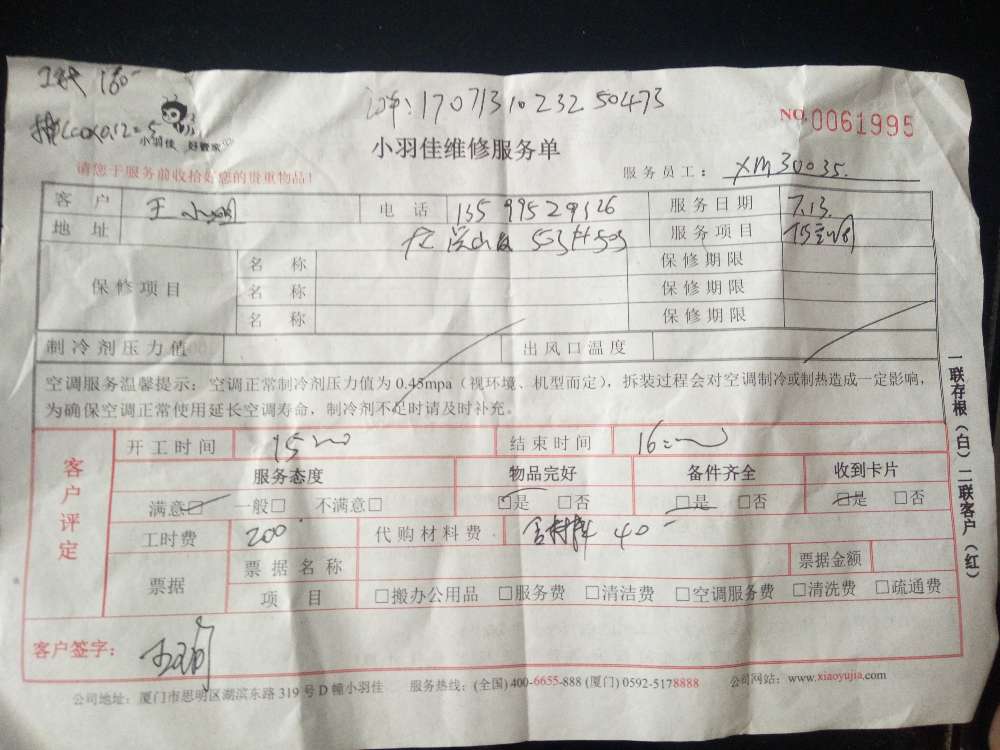 160-
170713102325 0473
小羽佳 好管家
NO.0061995
小羽佳维修服务单
请您于服务前收拾好您的贵重物品!
服务员工: XM30035.
客户 王小 电话 13599529126 服务日期 7.13.
地址 503 服务项目
保修项目 名称 保修期限
名称 保修期限
名称 保修期限
制冷剂压力值 出风口温度
空调服务温馨提示:空调正常制冷剂压力值为0.45mpa(视环境、机型而定),拆装过程会对空调制冷或制热造成一定影响,
为确保空调正常使用延长空调寿命,制冷剂不足时请及时补充。
一联存根(白)二联客户(红)
客户评定
开工时间 15:00 结束时间 16:00
服务态度 物品完好 备件齐全 收到卡片
满意□ 一般□ 不满意□ □是 □否 □是 □否 □是 □否
工时费 200 代购材料费 含材料 40-
票据 票据名称 票据金额
项目 □搬办公用品 □服务费 □清洁费 □空调服务费 □清洗费 □疏通费
客户签字:
公司地址:厦门市思明区湖滨东路319号D幢小羽佳 服务热线:(全国)400-6655-888(厦门)0592-5178888 公司网站:www.xiaoyujia.com